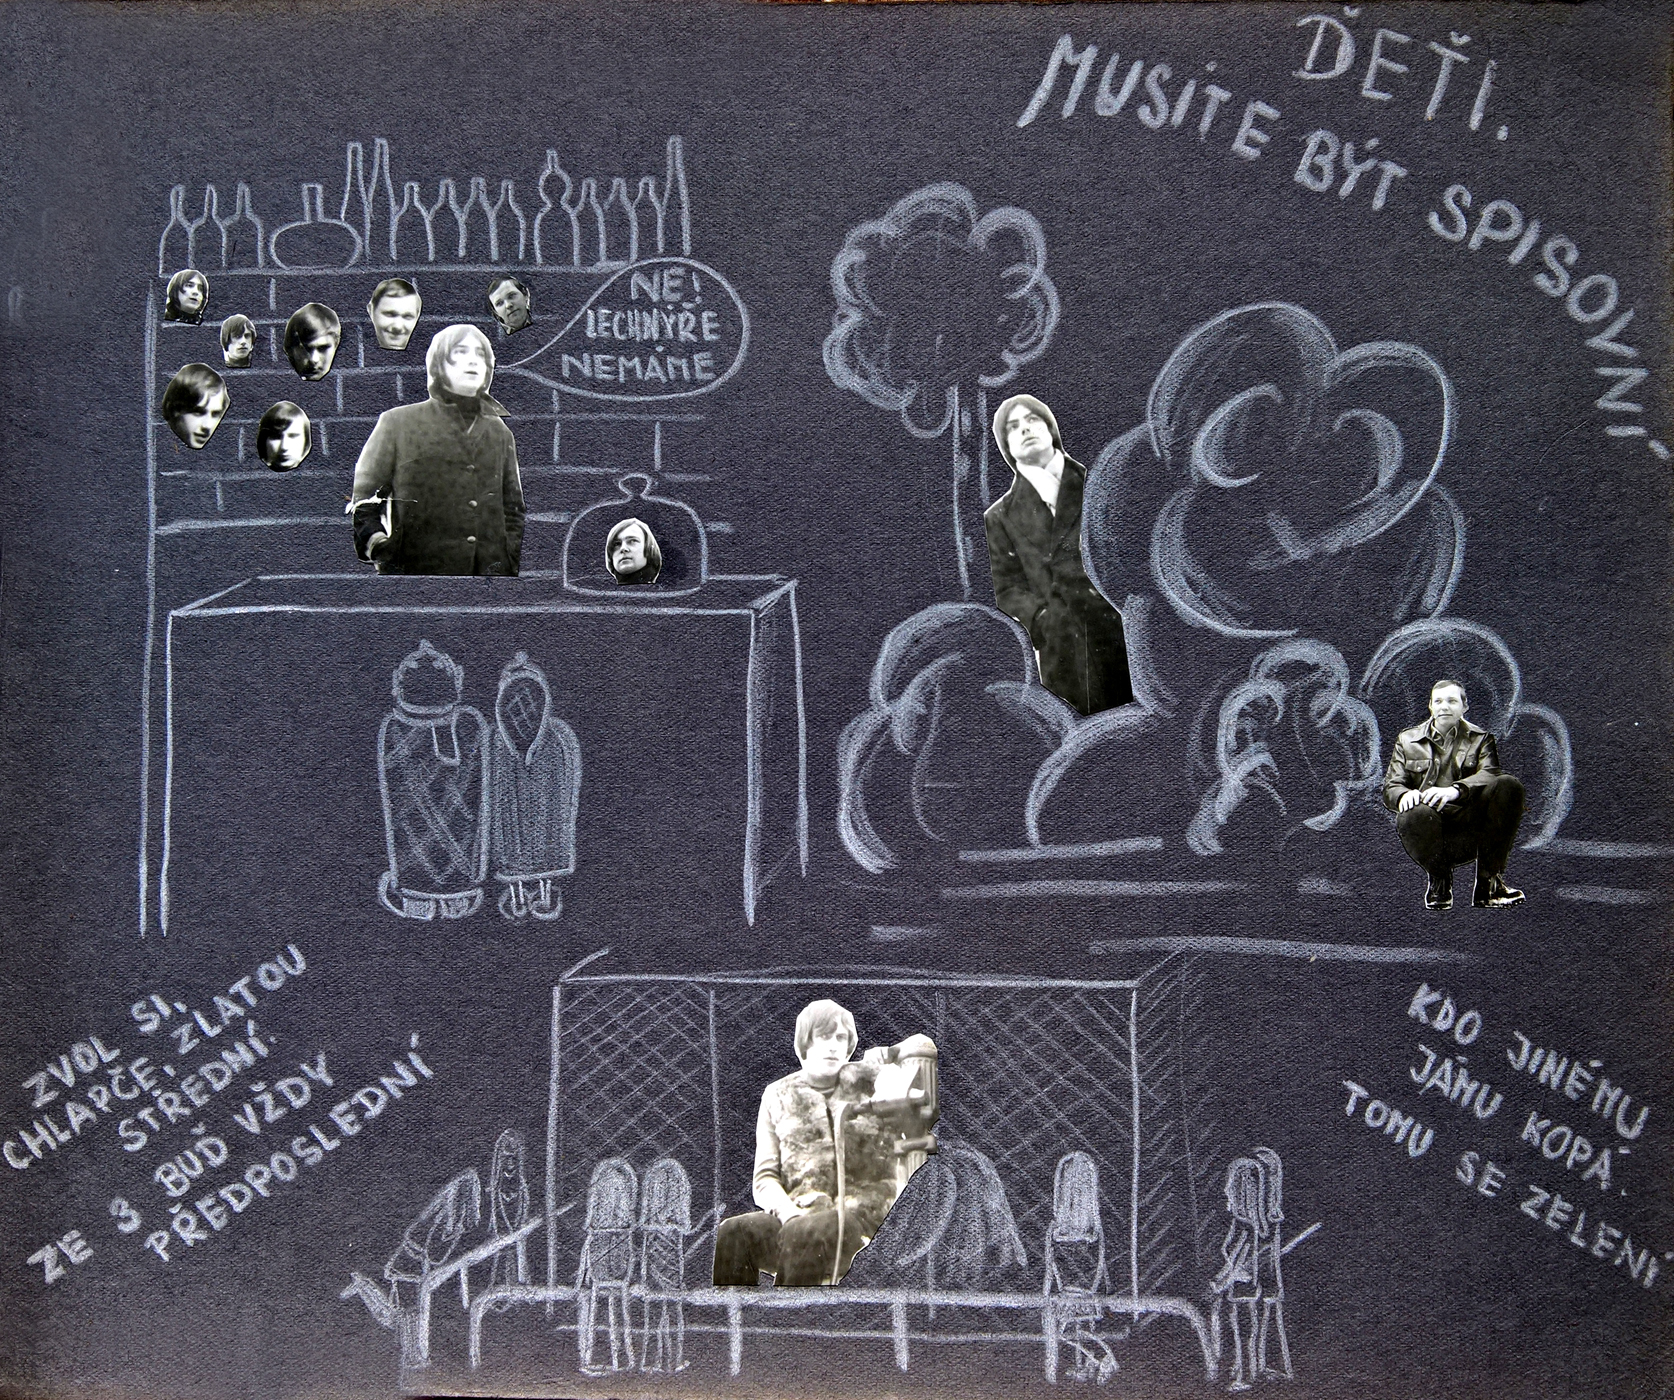 ĎEŤI.
MUSÍTE BÝT SPISOVNÍ
NE!
NEMÁME
ZVOL SI,
CHLAPČE, ZLATOU
STŘEDNÍ.
ZE 3 BUĎ VŽDY
PŘEDPOSLEDNÍ
KDO JINÉMU
JÁMU KOPÁ.
TOMU SE ZELENÍ